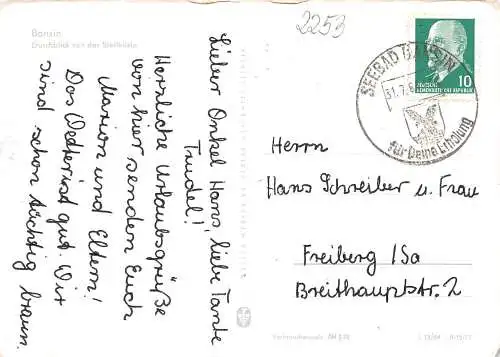 Bansin
Durchblick von der Steilküste
2253
Lieber Onkel Hans, liebe Tante
Trudel!
Herzliche Urlaubsgrüße
von hier senden Euch
Marion und Eltern!
Das Wetter ist gut. Wir
sind schon tüchtig braun.
SEEBAD BANSIN
31.7.
für Deine Erholung
DEUTSCHE
DEMOKRATISCHE REPUBLIK
10
Herrn
Hans Schreiber u. Frau
Freiberg /Sa
Breithauptstr. 2